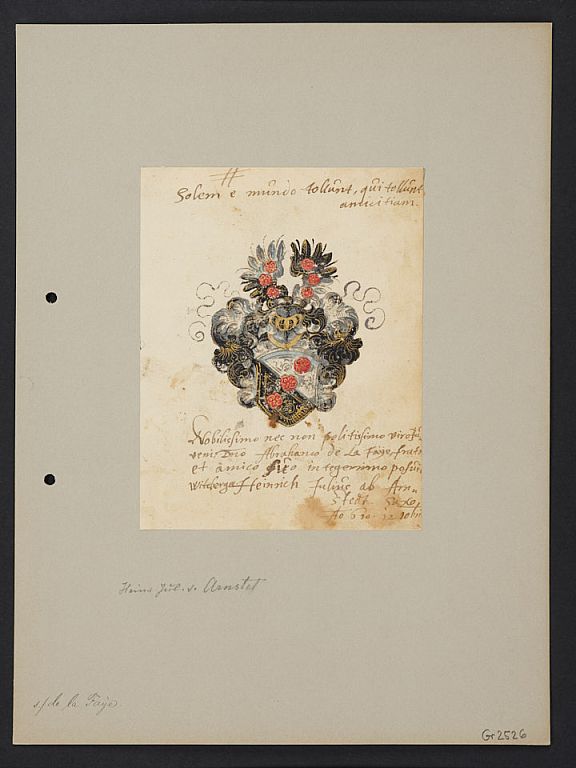 #
Solem e mundo tollunt, qui tollunt
amicitiam.
Nobilissimo nec non politissimo viro Ju-
veni Dno Abrahamo de La Faye, frat
et amico suo integerrimo posuit
Witeberga Heinrich Julius ab Arn-
stedt Saxo,
Ao 610. 12
Heinr. Jul. v. Arnstet
s/ de la Faye.
Gr 2526